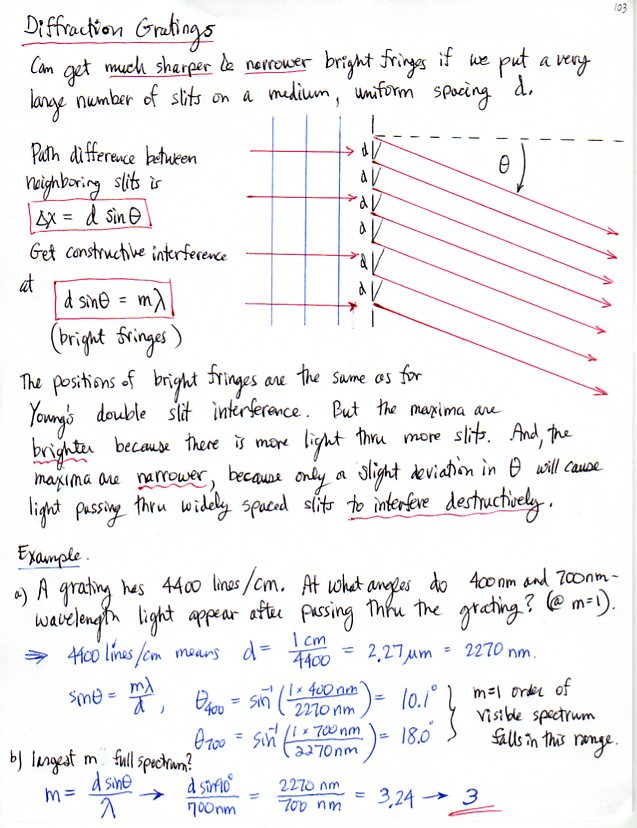 103
Diffraction Gratings
Can get much sharper & narrower bright fringes if we put a very
large number of slits on a medium, uniform spacing d.
Path difference between
neighboring slits is
Δx = d sinθ
Get constructive interference
at
d sinθ = mλ
(bright fringes)
d
d
d
d
d
d
θ
The positions of bright fringes are the same as for
Young's double slit interference. But the maxima are
brighter because there is more light thru more slits. And, the
maxima are narrower, because only a slight deviation in θ will cause
light passing thru widely spaced slits to interfere destructively.
Example.
a) A grating has 4400 lines/cm. At what angles do 400nm and 700nm-
wavelength light appear after passing thru the grating? (@ m=1).
⇒ 4400 lines/cm means d = 1 cm / 4400 = 2.27 μm = 2270 nm.
sinθ = mλ / d , θ400 = sin⁻¹ (1 × 400 nm / 2270 nm) = 10.1° } m=1 order of
visible spectrum
θ700 = sin⁻¹ (1 × 700 nm / 2270 nm) = 18.0° falls in this range.
b) largest m full spectrum?
m = d sinθ / λ → d sin90° / 700nm = 2270 nm / 700 nm = 3.24 → 3